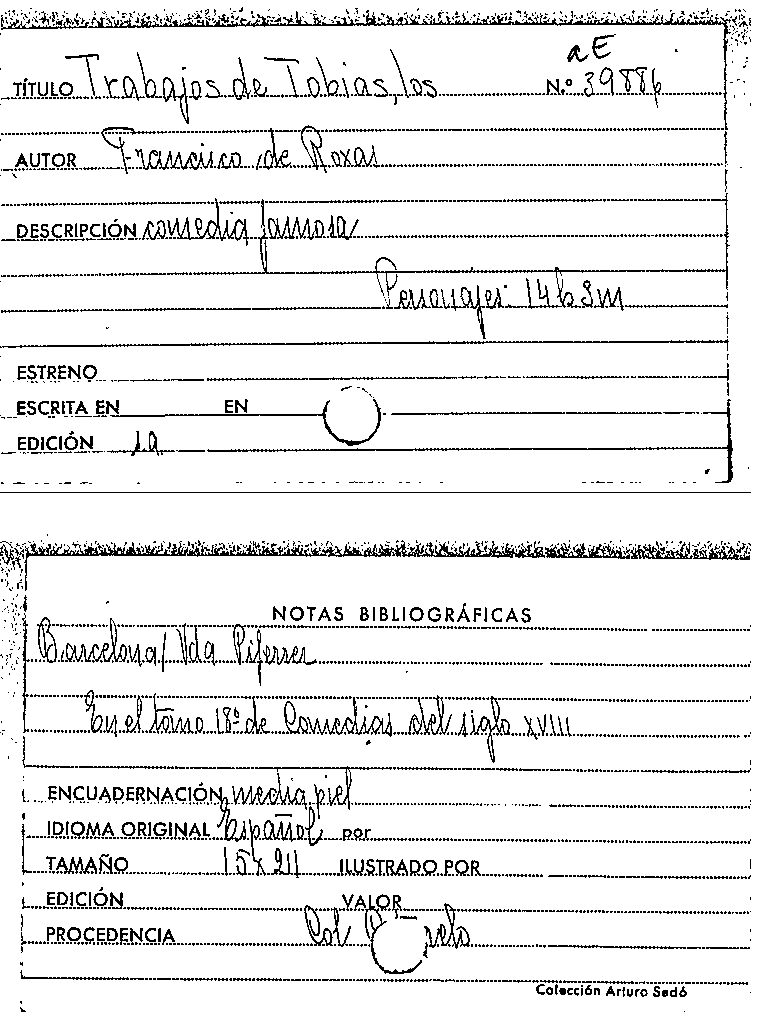 aE
TÍTULO Trabajos de Tobias, los N.º 39886
AUTOR Francisco de Roxas
DESCRIPCIÓN comedia famosa
Personajes: 14h 3m
ESTRENO
ESCRITA EN EN
EDICIÓN s.a.
NOTAS BIBLIOGRÁFICAS
Barcelona/ Vda Piferrer
En el tomo 18º de Comedias del siglo XVIII
ENCUADERNACIÓN media piel
IDIOMA ORIGINAL Español por
TAMAÑO 15x211 ILUSTRADO POR
EDICIÓN VALOR
PROCEDENCIA Col
Colección Arturo Sedó